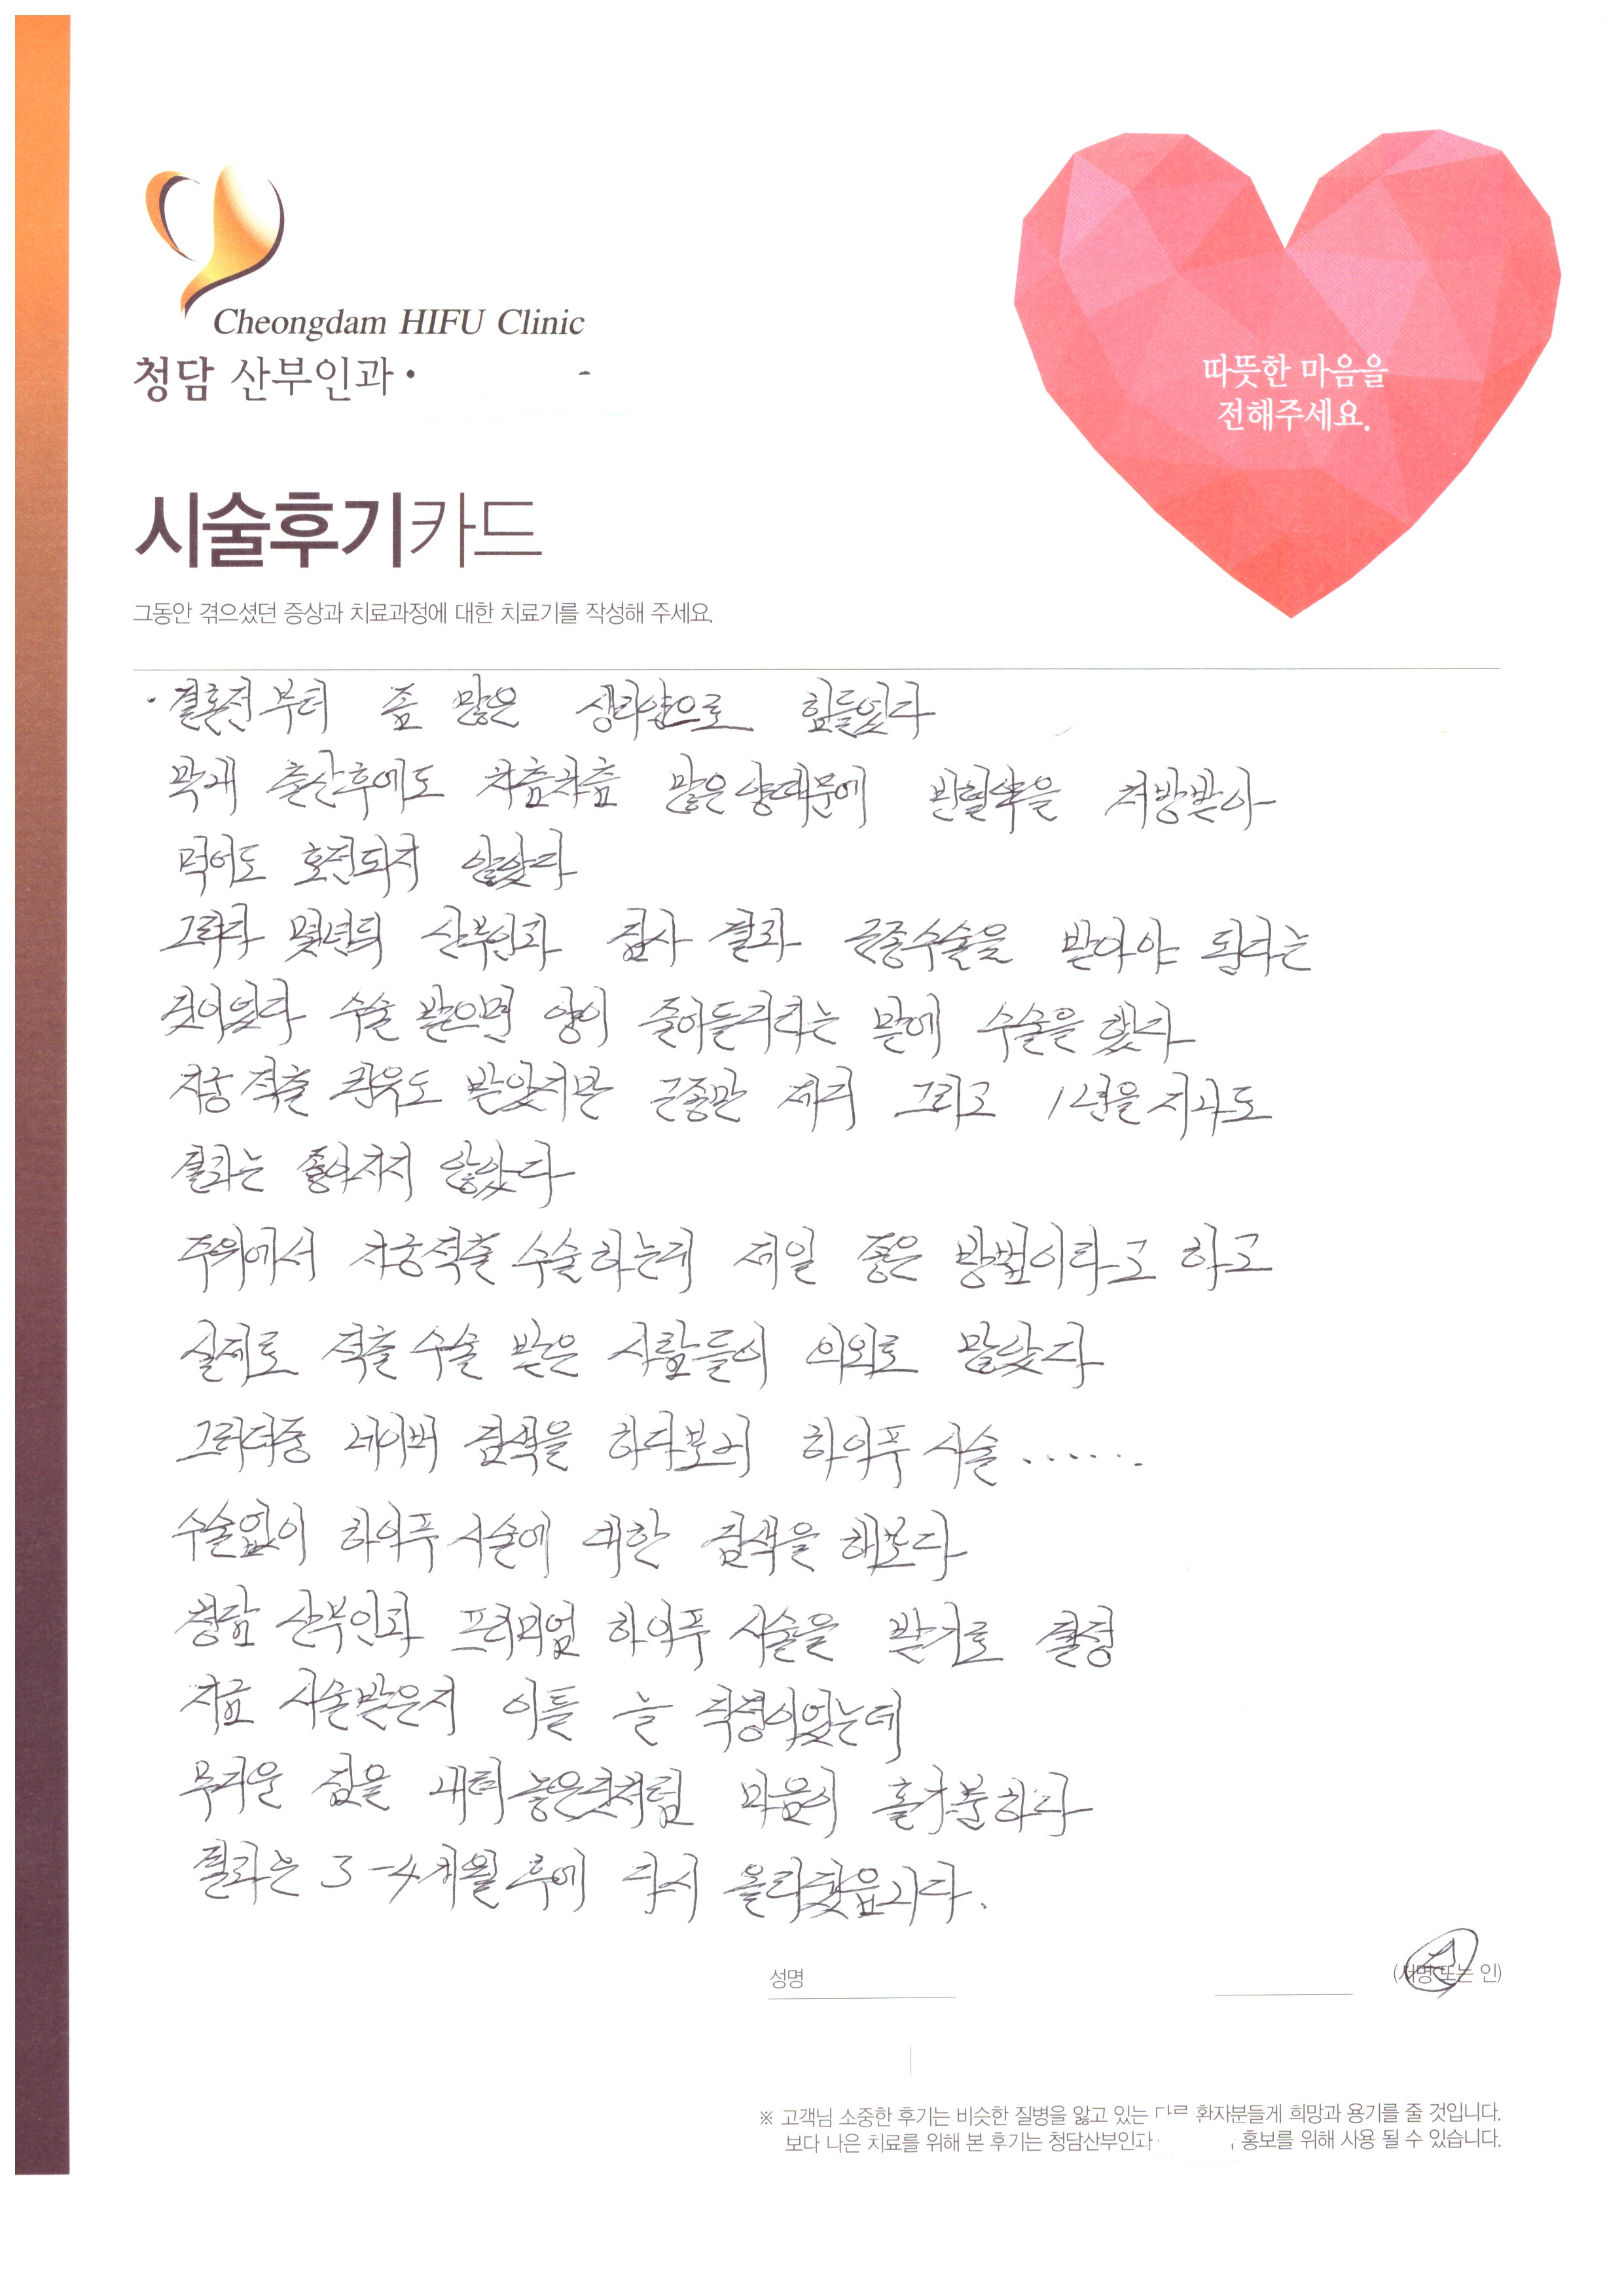 Cheongdam HIFU Clinic
청담 산부인과 •
따뜻한 마음을
전해주세요.
시술후기카드
그동안 겪으셨던 증상과 치료과정에 대한 치료기를 작성해 주세요.
· 결혼전부터 좀 많은 생리양으로 힘들었다
막내 출산후에도 차츰차츰 많은양때문에 빈혈약을 처방받아
먹어도 호전되지 않았다
그러다 몇년뒤 산부인과 검사 결과 근종수술을 받아야 된다는
것이었다 수술 받으면 양이 줄어들거라는 말에 수술을 했다
자궁적출 권유도 받았지만 근종만 제거 그리고 1년을 지나도
결과는 좋아지지 않았다
주위에서 자궁적출 수술하는게 제일 좋은 방법이라고 하고
실제로 적출수술 받은 사람들이 의외로 많았다
그러던중 네이버 검색을 하다보니 하이푸 시술......
수술없이 하이푸 시술에 대한 검색을 해보다
청담 산부인과 프리미엄 하이푸 시술을 받기로 결정
지금 시술받은지 이틀 늘 걱정이었는데
무거운 짐을 내려놓은것처럼 마음이 홀가분하다
결과는 3-4개월 후에 다시 올리겠읍니다.
성명 (서명 또는 인)
※ 고객님 소중한 후기는 비슷한 질병을 앓고 있는 다른 환자분들게 희망과 용기를 줄 것입니다.
보다 나은 치료를 위해 본 후기는 청담산부인과 홍보를 위해 사용 될 수 있습니다.